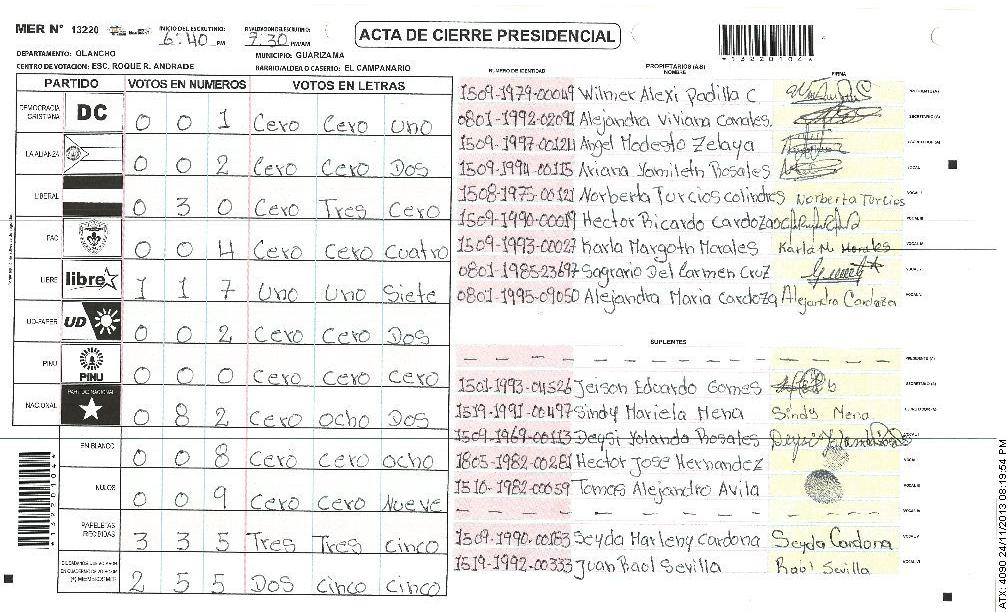 MER Nº 13220
INICIO DEL ESCRUTINIO: 6:40 PM
FINALIZACION DEL ESCRUTINIO: 7.30 PM/AM
ACTA DE CIERRE PRESIDENCIAL
DEPARTAMENTO: OLANCHO
MUNICIPIO: GUARIZAMA
CENTRO DE VOTACION: ESC. ROQUE R. ANDRADE
BARRIO/ALDEA O CASERIO: EL CAMPANARIO
PARTIDO VOTOS EN NUMEROS VOTOS EN LETRAS
DEMOCRACIA CRISTIANA DC 0 0 1 Cero Cero uno
LA ALIANZA 0 0 2 Cero Cero Dos
LIBERAL 0 3 0 Cero Tres Cero
PAC 0 0 4 Cero Cero Cuatro
LIBRE libre 1 1 7 Uno Uno Siete
UD-FAPER UD 0 0 2 Cero Cero Dos
PINU PINU 0 0 0 Cero Cero Cero
NACIONAL PARTIDO NACIONAL 0 8 2 Cero ocho Dos
EN BLANCO 0 0 8 Cero Cero ocho
NULOS 0 0 9 Cero Cero Nueve
PAPELETAS RECIBIDAS 3 3 5 Tres Tres cinco
2 5 5 Dos cinco cinco
PROPIETARIOS (AS)
NUMERO DE IDENTIDAD NOMBRE FIRMA
1509-1979-00049 Wilmer Alexi Padilla C
0801-1992-02091 Alejandra Viviana Canales
1509-1997-00121 Angel Modesto Zelaya
1509-1994-00115 Ariana Yamileth Rosales
1508-1975-00121 Norberta Turcios colindres Norberta Turcios
1509-1990-00019 Hector Ricardo Cardoza
1509-1993-00027 Karla Margoth Morales Karla M Morales
0801-1985-23697 Sagrario Del Carmen Cruz
0801-1995-09050 Alejandra Maria cardoza Alejandra Cardoza
SUPLENTES
1501-1993-04526 Jeison Eduardo Gomes
1519-1991-00497 Sindy Mariela Mena Sindy Mena
1509-1969-00113 Deysi Yolando Rosales
1805-1982-00281 Hector Jose Hernandez
1510-1982-00059 Tomas Alejandro Avila
1509-1990-00153 Seyda Marleny Cardona Seyda Cardona
1519-1992-00333 Juan Raol Sevilla Raol Sevilla
ATX: 4090 24/11/2013 08:19:54 PM